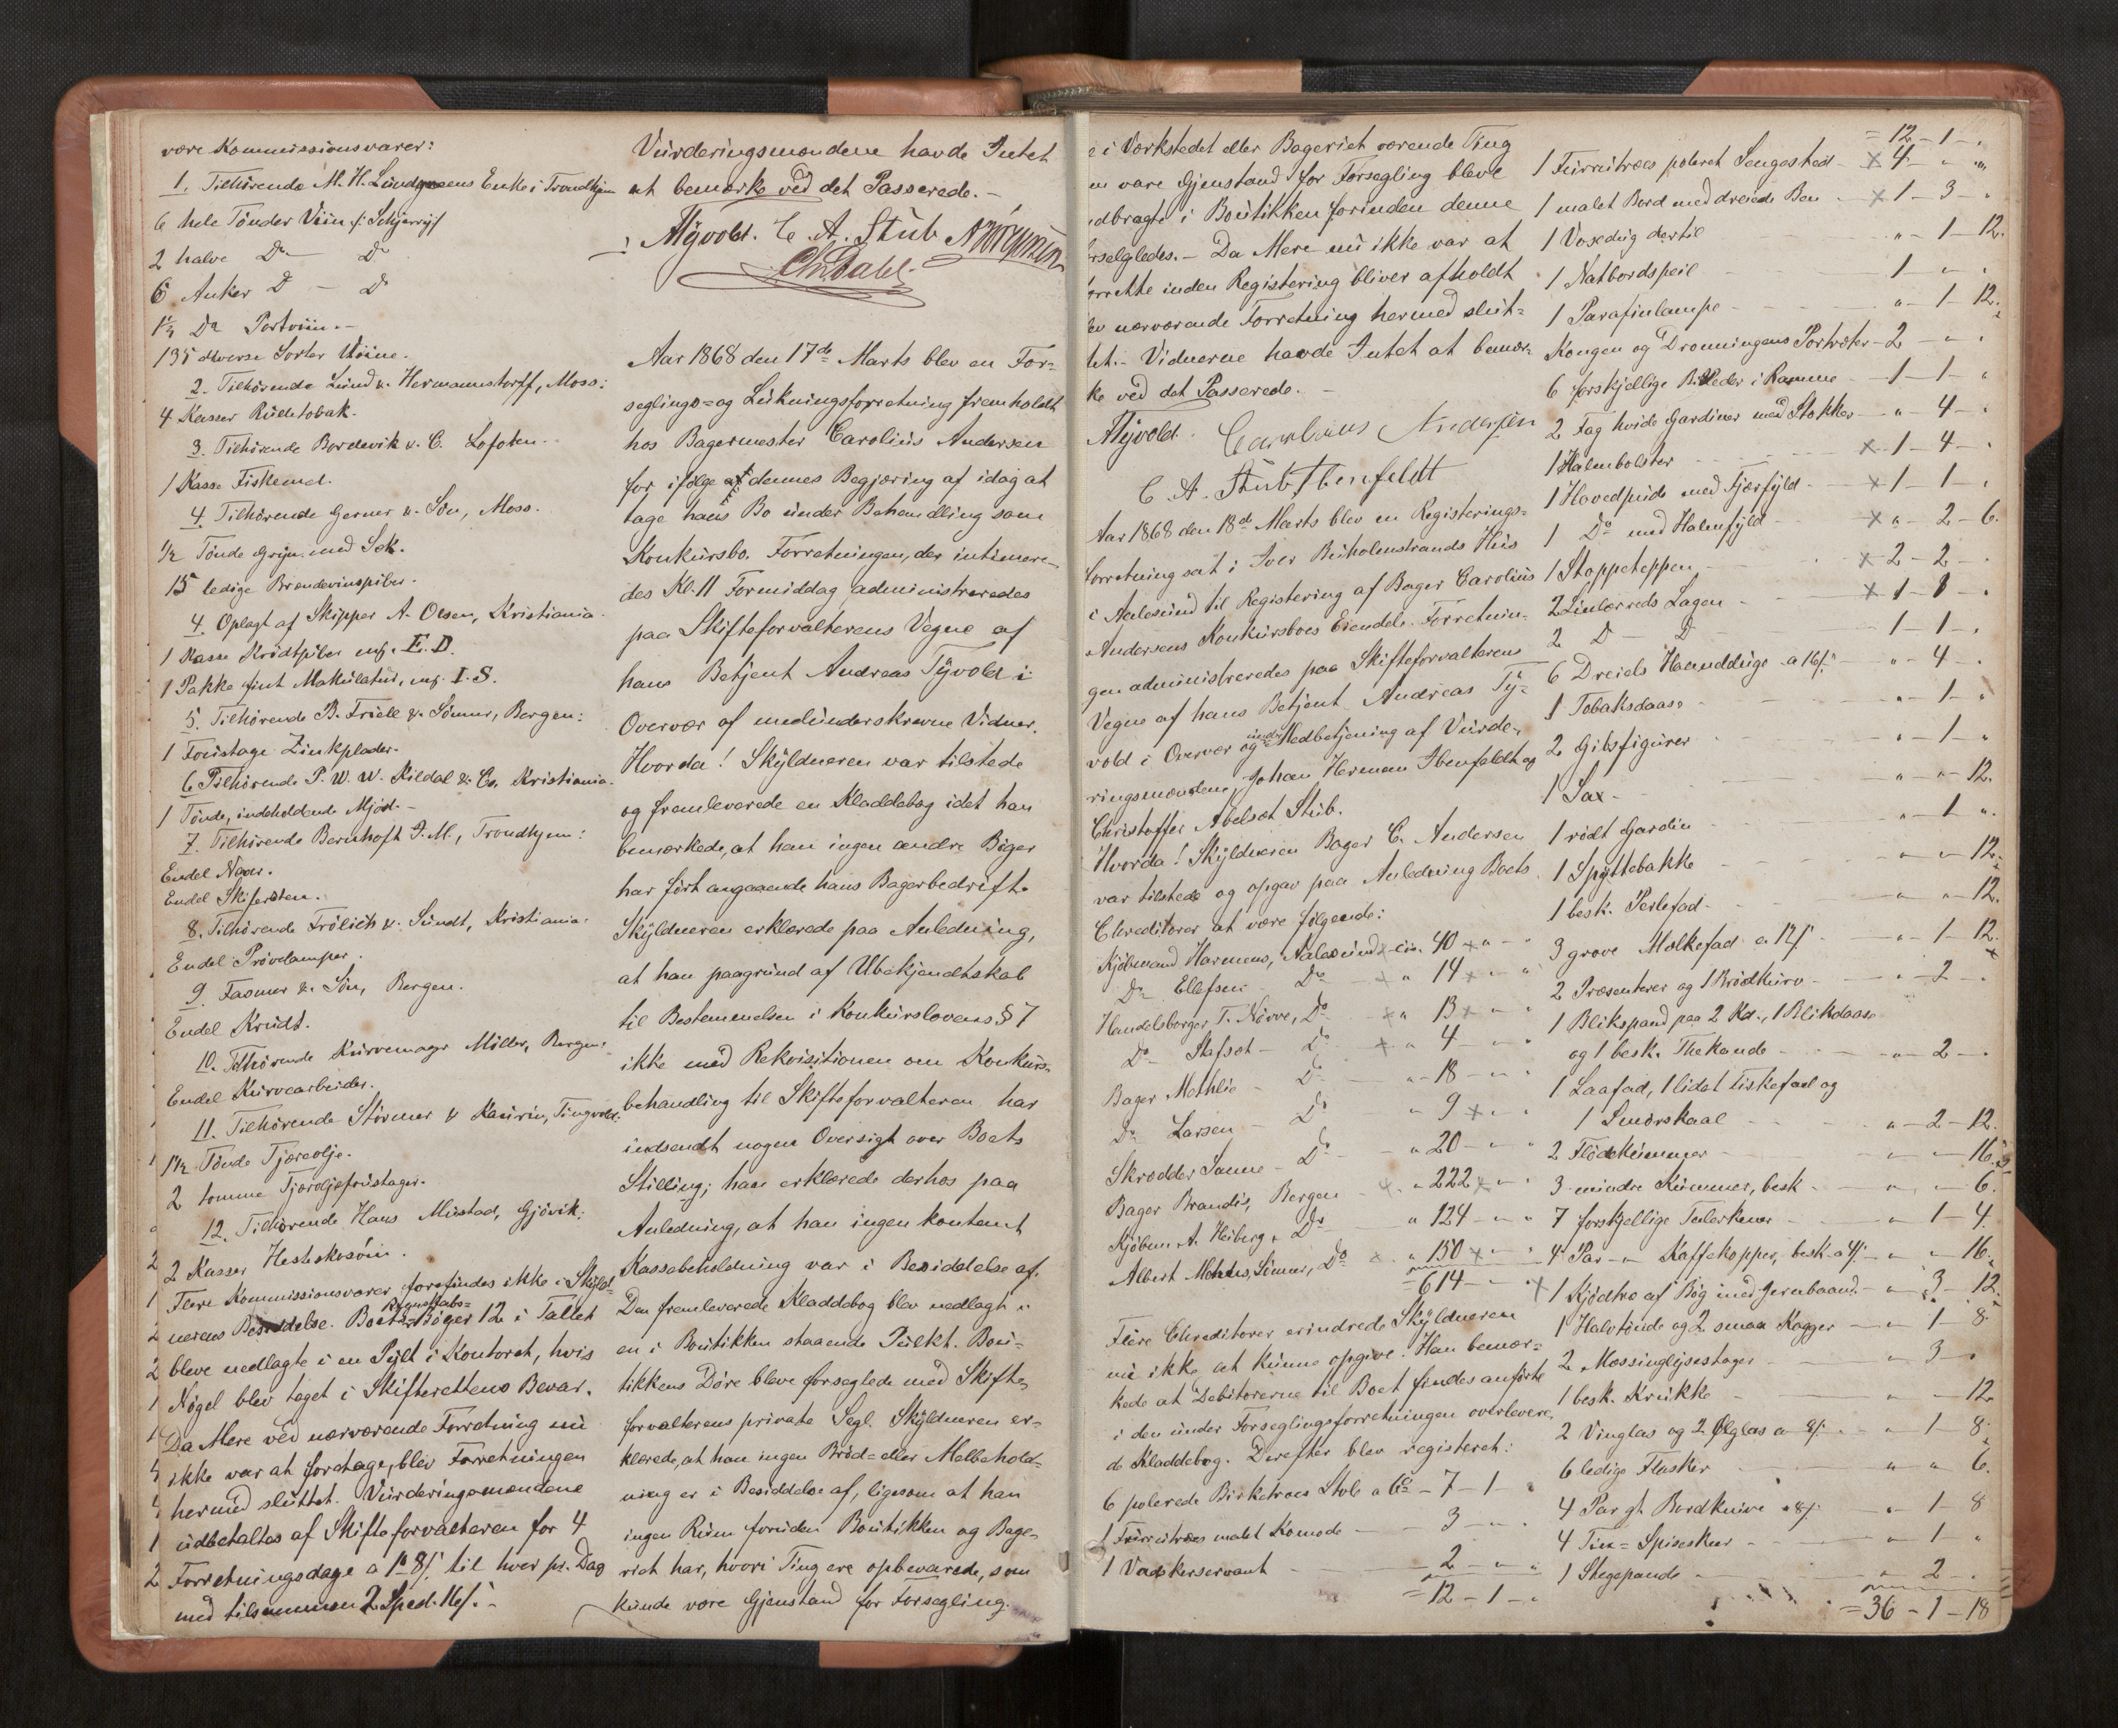 være Kommissionsvarer:
1. Tilhørende M. H. Lundgreens Enke i Trondhjem
6 hele Tønder Viin /: Schjerry /
2 halve Do — Do
6 Anker D — Do
1½ Do Portviin. -
135 diverse Sorter Viine.
2. Tilhørende Lund & Hermannstorff, Moss:
4 Kasser Rulletobak.
3. Tilhørende Bordevik & C. Lofoten.
1 Kasse Fiskemel.
4. Tilhørende Gerner & Søn, Moss.
½ Tønde Gryn med Sæk.
15 ledige Brændevinspiber.
4. Oplagt af Skipper A. Olsen, Kristiania.
1 Kasse Kridtpiber mrk. E. D.
1 Pakke fint Makulatur, mrk. I. S.
5. Tilhørende B. Friele & Sønner, Bergen:
1 Foustage Zinkplader.
6 Tilhørende P. W. W. Kildal & Co, Kristiania.
1 Tønde, indeholdende Mjød. -
7. Tilhørende Bernhoft I. M., Trondhjem:
Endel Naver.
Endel Skifersten.
8. Tilhørende Frölich & Sundt, Kristiania.
Endel Prøvelamper.
9. Fasmer & Søn, Bergen.
Endel Krudt.
10. Tilhørende Kurvemager Müller, Bergen:
Endel Kurvearbeider.
11. Tilhørende Störmer & Kasirin, Tingvold:
1½ Tønde Tjæreolje.
2 tomme Tjæreoljefustager.
12. Tilhørende Hans Mustad, Gjøvik:
2 Kasser Hesteskosøm.
Flere Kommissionsvarer forefindes ikke i Skyld-
nerens Besiddelse. Boets Regnskabs-Bøger 12 i Tallet
bleve nedlagte i en Pult i Kontoret, hvis
Nøgel blev taget i Skifterettens Bevar.
Da Mere ved nærværende Forretning nu
ikke var at foretage, blev Forretningen
hermed sluttet. Vurderingsmændene
udbetaltes af Skifteforvalteren for 4
Forretningsdage a 1 8/: til hver pr. Dag
med tilsammen 2 Spd. 16/: -
Vurderingsmændene havde Intet
at bemærke ved det Passerede. -
Myvold. C. A. Stub
Chr Dahl
Aar 1868 den 17de Marts blev en For-
seglings- og Lukningsforretning fremholdt
hos Bagermester Carolius Andersen
for ifølge dennes Begjæring af idag at
tage hans Bo under Behandling som
Konkursbo. Forretningen, der intimere-
des Kl. 11 Formiddag administreredes
paa Skifteforvalterens Vegne af
hans Betjent Andreas Tyvold i
Overvær af medunderskrevne Vidner.
Hvorda! Skyldneren var tilstede
og fremleverede en Kladdebog idet han
bemærkede, at han ingen andre Bøger
har ført angaaende hans Bagerbedrift.
Skyldneren erklærede paa Anledning,
at han paagrund af Ubekjendtskab
til Bestemmelsen i Konkurslovens § 7
ikke med Rekvisitionen om Konkurs-
behandling til Skifteforvalteren har
indsendt nogen Oversigt over Boets
Stilling; han erklærede derhos paa
Anledning, at han ingen kontant
Kassebeholdning var i Besiddelse af.
Den fremleverede Kladdebog blev nedlagt i
en i Boutikken staaende Pulkt. Bou-
tikkens Døre bleve forseglede med Skifte-
forvalterens private Segl. Skyldneren er-
klærede, at han ingen Brød- eller Melbehold-
ning er i Besiddelse af, ligesom at han
ingen Rum foruden Boutikken og Bage-
riet har, hvori Ting ere opbevarede, som
kunde være Gjenstand for Forsegling.
i Værkstedet eller Bageriet værende Ting
vare Gjenstand for Forsegling bleve
indbragte i Boutikken forinden denne
forsegledes. - Da Mere nu ikke var at
forrette inden Registering bliver afholdt
blev nærværende Forretning hermed slut-
tet. - Vidnerne havde Intet at bemær-
ke ved det Passerede. -
Myvold. Carolius Andersen
C. A. Stub Ibenfeldt
Aar 1868 den 18de Marts blev en Registerings-
forretning sat i Iver Buholmstrands Hus
i Aalesund til Registering af Bager Carolius
Andersens Konkursboes Eiendele. Forretnin-
gen administreredes paa Skifteforvalterens
Vegne af hans Betjent Andreas Ty-
vold i Overvær og under Medbetjening af Vurde-
ringsmændene Johan Herman Ibenfeldt og
Christoffer Abelsæt Stub.
Hvorda! Skyldneren Bager C. Andersen
var tilstede og opgav paa Anledning Boets
Chreditorer at være følgende:
Kjøbmand Harmens, Aalesund cir. 40 " "
Do Ellefsen Do " 14 " "
Handelsborger T. Nørve, Do " 13 " "
Do Stafset - Do " 4 - "
Bager Mathlie - Do " 18 - "
Do Larsen - Do " 9 " "
Skrædder Sanne - Do " 20 - "
Bager Brandt, Bergen " 222 - "
Kjøbm. A. Heiberg, Do " 124 - "
Albert Mohles, Sønner, Do " 150 - "
= 614 - "
Flere Chreditorer erindrede Skyldneren
nu ikke at kunne opgive. Han bemær-
kede at Debitorerne til Boet findes anførte
i den under Forseglingsforretningen overlevere-
de Kladdebog. Derefter blev registeret:
6 polerede Birketræes Stole a - 7 - 1 - "
1 Furutræes malet Komode - 3 - " -
1 Vaskerservant - 2 - " - "
= 12 - 1 - "
= 12 - 1 - "
1 Furrutræes poleret Sengested - 4 - " - "
1 malet Bord med dreiede Ben - 1 - 3 - "
1 Voxdug dertil " - 1 - 12.
1 Natbordspeil 1 - " - "
1 Parafinlampe - " - 1 - 12.
Kongen og Dronningens Portræter - 2 - " - "
6 forskjellige Billeder i Ramme - 1 - 1 - "
2 Fag hvide Gardiner med Stokker - " - 4 - "
1 Halmbolster - 1 - 4 - "
1 Hovedpude med Fjærfyld - 1 - 1 - "
1 Do med Halmfyld " - 2 - 6.
1 Stoppeteppen - 2 - 2 - "
2 Linlærreds Lagen - 1 - 1 - "
2 D - D 1 - 1 - "
6 Dreiels Haandduge a 16/: " - 4 - "
1 Tobaksdaase " - 1 - "
2 Gibsfigurer " - 1 - "
1 Sax - " - " - 12.
1 rødt Gardin " - 1 - "
1 Spyttebakke " - " - 12.
1 besk. Perlefad - " - " - 12.
3 grove Mælkefad a 12/: " - 1 - 12.
2 Præsenterer og 1 Brødkurv - " - 2 - "
1 Blikspand paa 2 Kd., 1 Blikdaase
og 1 besk. Thekande - " - 2 - "
1 Laafad, 1 lidet Fiskefad og
1 Smørskaal - " - 2 - 12.
2 Flødekummer - " - " - 16.
3 mindre Kummer, besk - " - " - 6.
7 forskjellige Talerkener - " - 1 - 4.
4 Par " Kaffekopper, besk. a 4/: " - " - 16.
1 Kjødtræ af Bøg med Jernbaand - " - 3 - 12.
1 Halvtønde og 2 smaa Kagger - " - 1 - 8.
2 Messinglysestager - " - 3 - "
1 besk. Krukke - " - " - 12
2 Vinglas og 2 Ølglas a 8/: - " - 1 - 8.
6 ledige Flasker " - " - 6.
4 Par gl. Bordknive a 8/: " - 1 - 8
4 Tin-Spiseskeer " - 1 - "
1 Stegepande - " - 2 - "
= 36 - 1 - 18